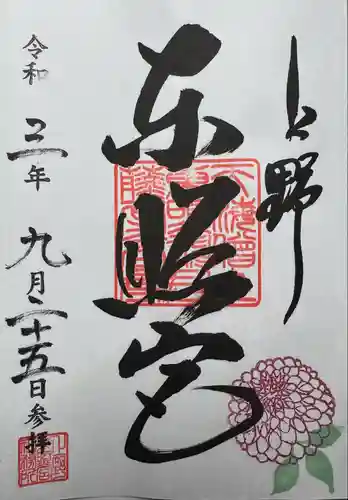 上野
東照宮
令和三年九月二十五日参拝